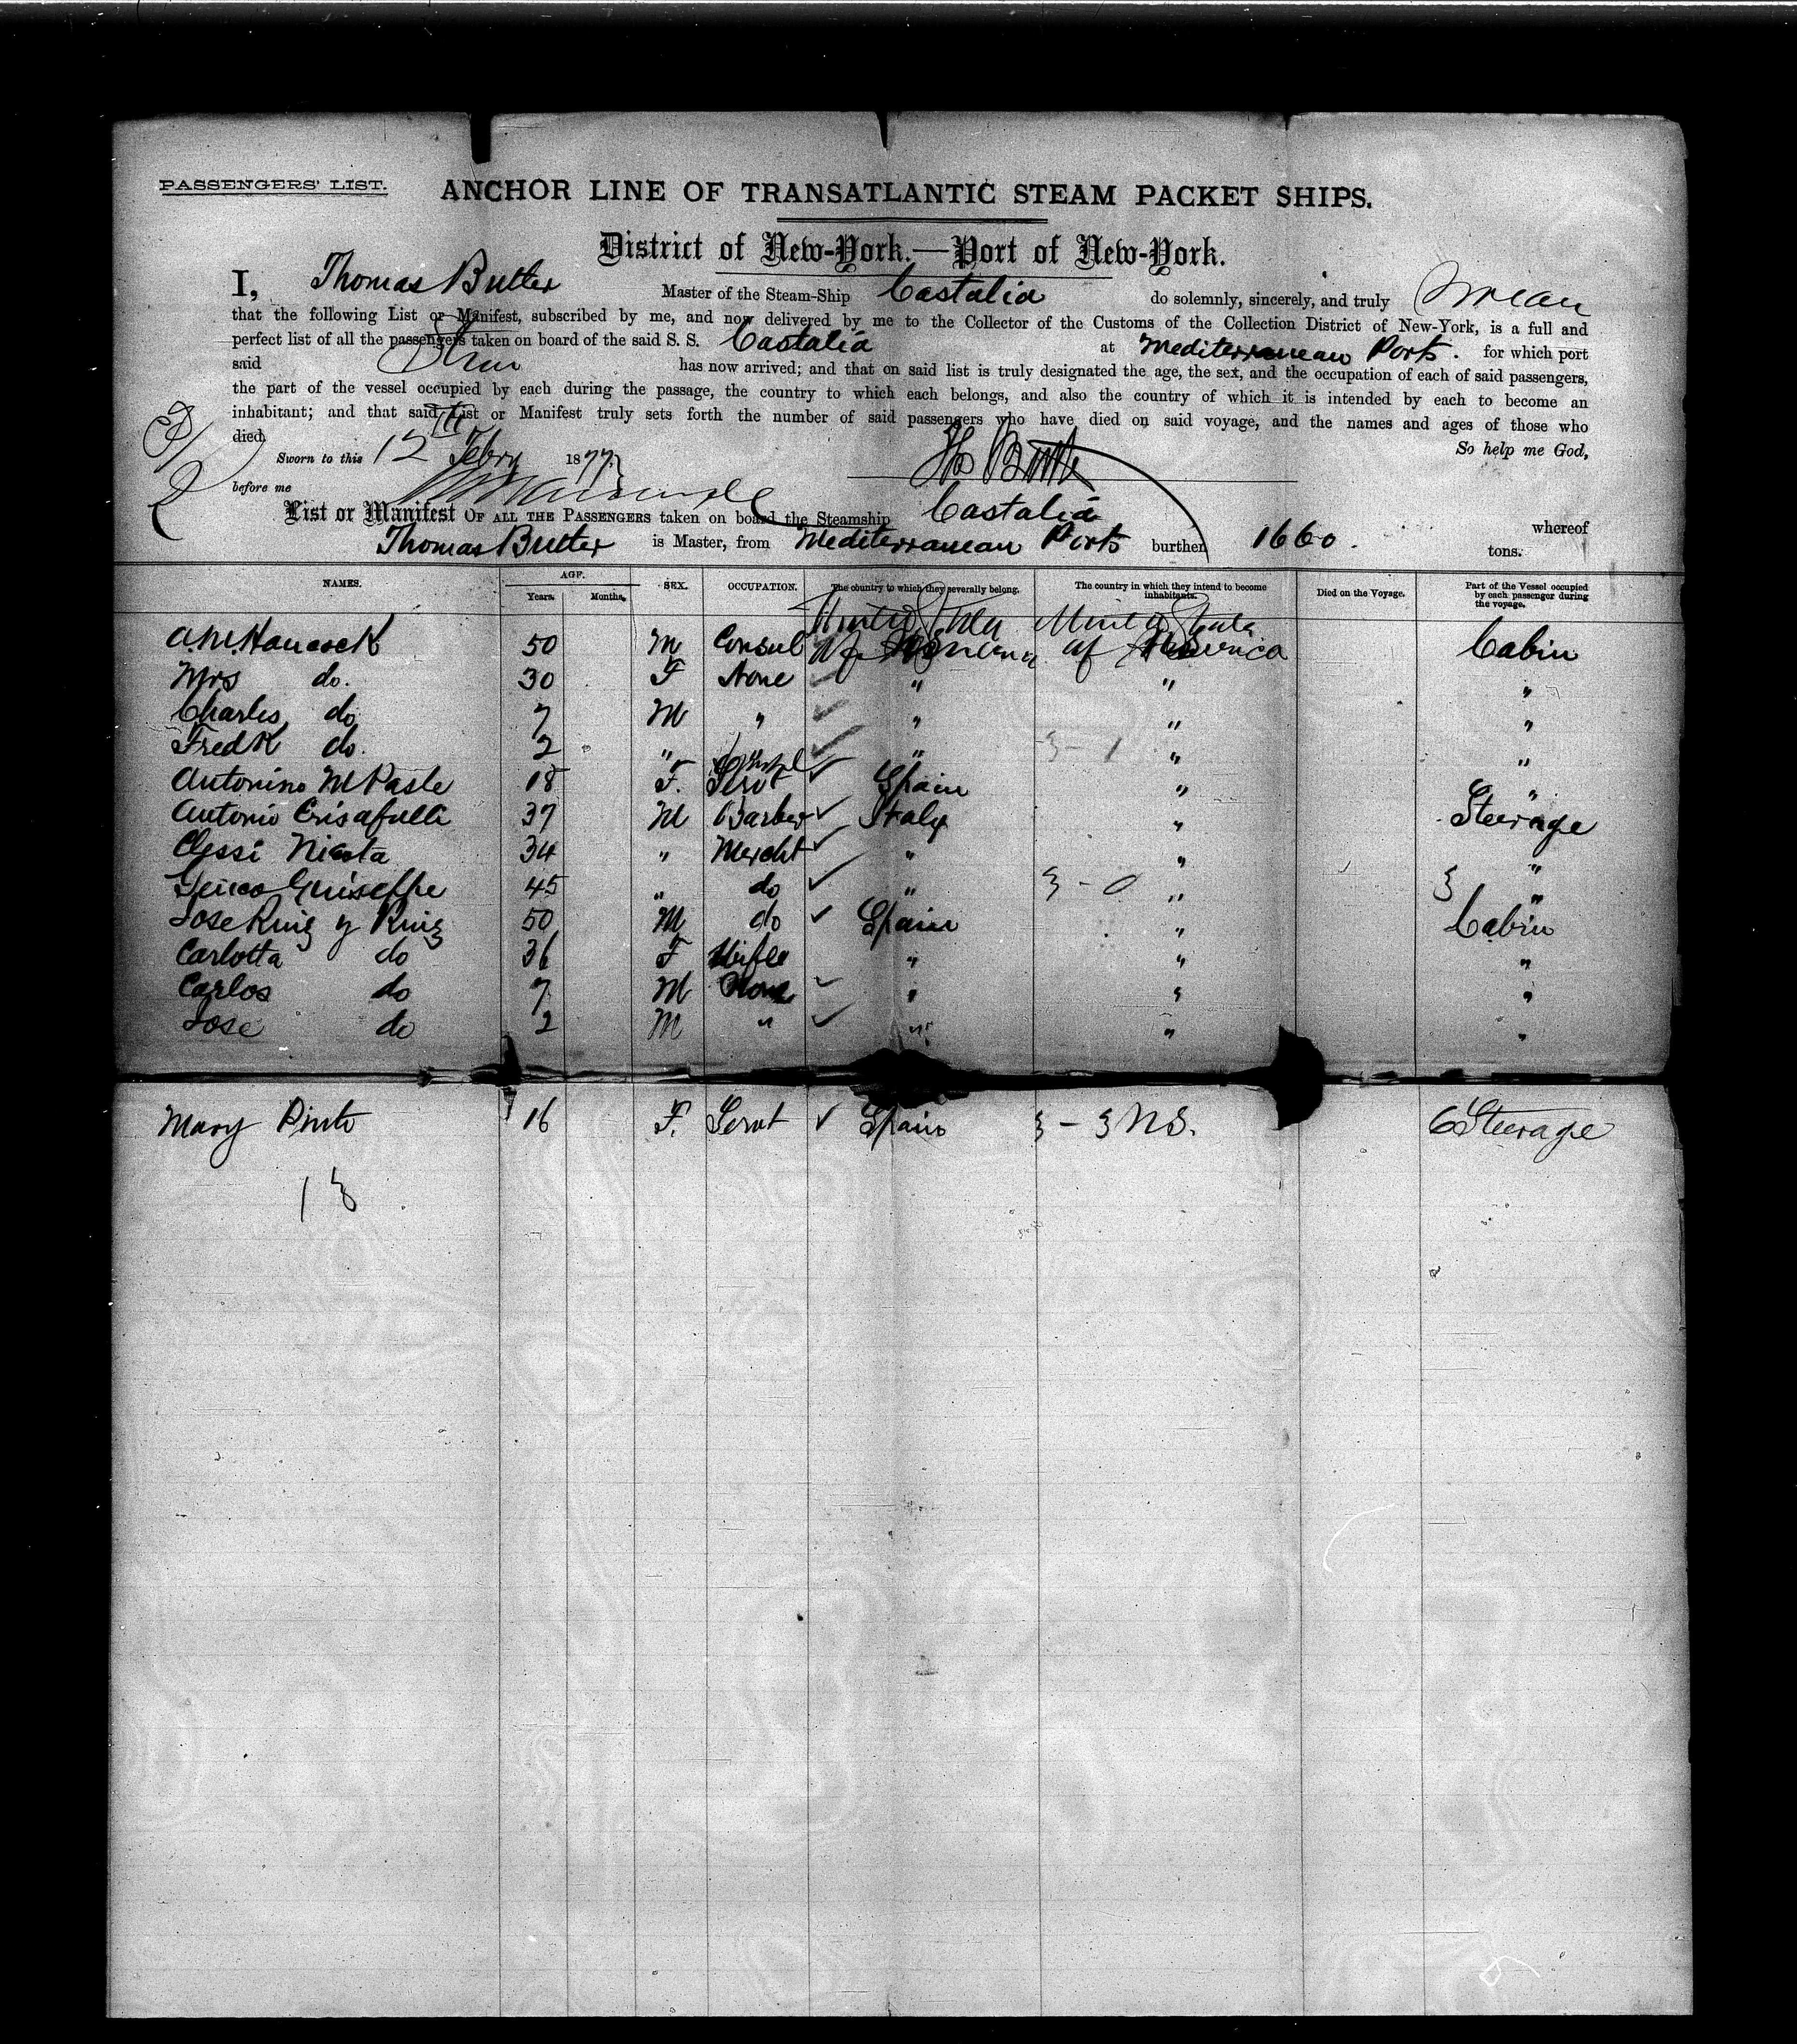 PASSENGERS' LIST.
ANCHOR LINE OF TRANSATLANTIC STEAM PACKET SHIPS.
District of New-York.—Port of New-York.
I, Thomas Butler Master of the Steam-Ship Castalia do solemnly, sincerely, and truly Swear
that the following List or Manifest, subscribed by me, and now delivered by me to the Collector of the Customs of the Collection District of New-York, is a full and
perfect list of all the passengers taken on board of the said S. S. Castalia at Mediterranean Ports. for which port
said has now arrived; and that on said list is truly designated the age, the sex, and the occupation of each of said passengers,
the part of the vessel occupied by each during the passage, the country to which each belongs, and also the country of which it is intended by each to become an
inhabitant; and that said List or Manifest truly sets forth the number of said passengers who have died on said voyage, and the names and ages of those who
died.
So help me God,
Sworn to this 12th Febry 1877 Tho Butler
before me
List or Manifest OF ALL THE PASSENGERS taken on board the Steamship Castalia whereof
Thomas Butler is Master, from Mediterranean Ports burthen 1660. tons.
NAMES. AGE. Years. Months. SEX. OCCUPATION. The country to which they severally belong. The country in which they intend to become inhabitants. Died on the Voyage. Part of the Vessel occupied by each passenger during the voyage.
United States United States
A.M. Hancock 50 M Consul of America of America Cabin
Mrs do. 30 F None " " "
Charles do 7 M " " " "
Fredk do. 2 " " " 3-1 " "
Antonino M Pasle 18 F. Servt Spain " "
Antonio Crisafulli 37 M Barber Italy " Steerage
Clessi Nicota 34 " Mercht " " "
Guiseffe 45 " do " 3-0 " 3 "
Jose Ruiz y Ruiz 50 M do Spain " Cabin
Carlotta do 36 F Wife " " "
Carlos do 7 M None " " "
Jose do 2 M " " " "
Mary Pinto 16 F. Servt Spain 3-3 NS. 6 Steerage
13